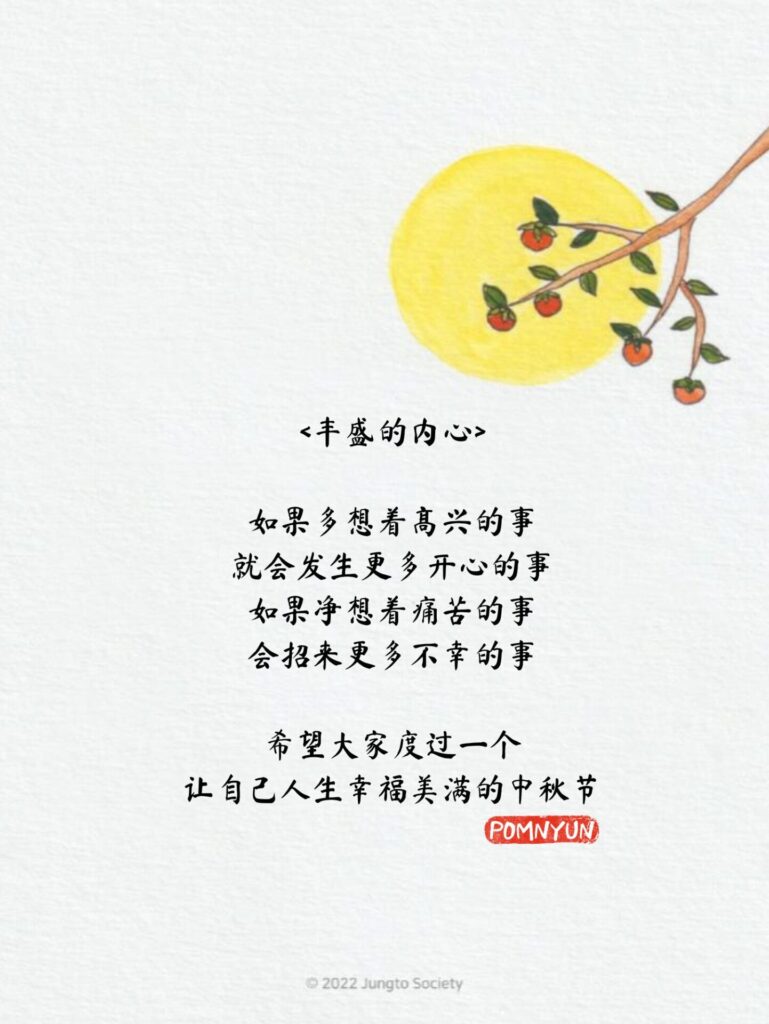 <丰盛的内心>
如果多想着高兴的事
就会发生更多开心的事
如果净想着痛苦的事
会招来更多不幸的事
希望大家度过一个
让自己人生幸福美满的中秋节
POMNYUN
© 2022 Jungto Society